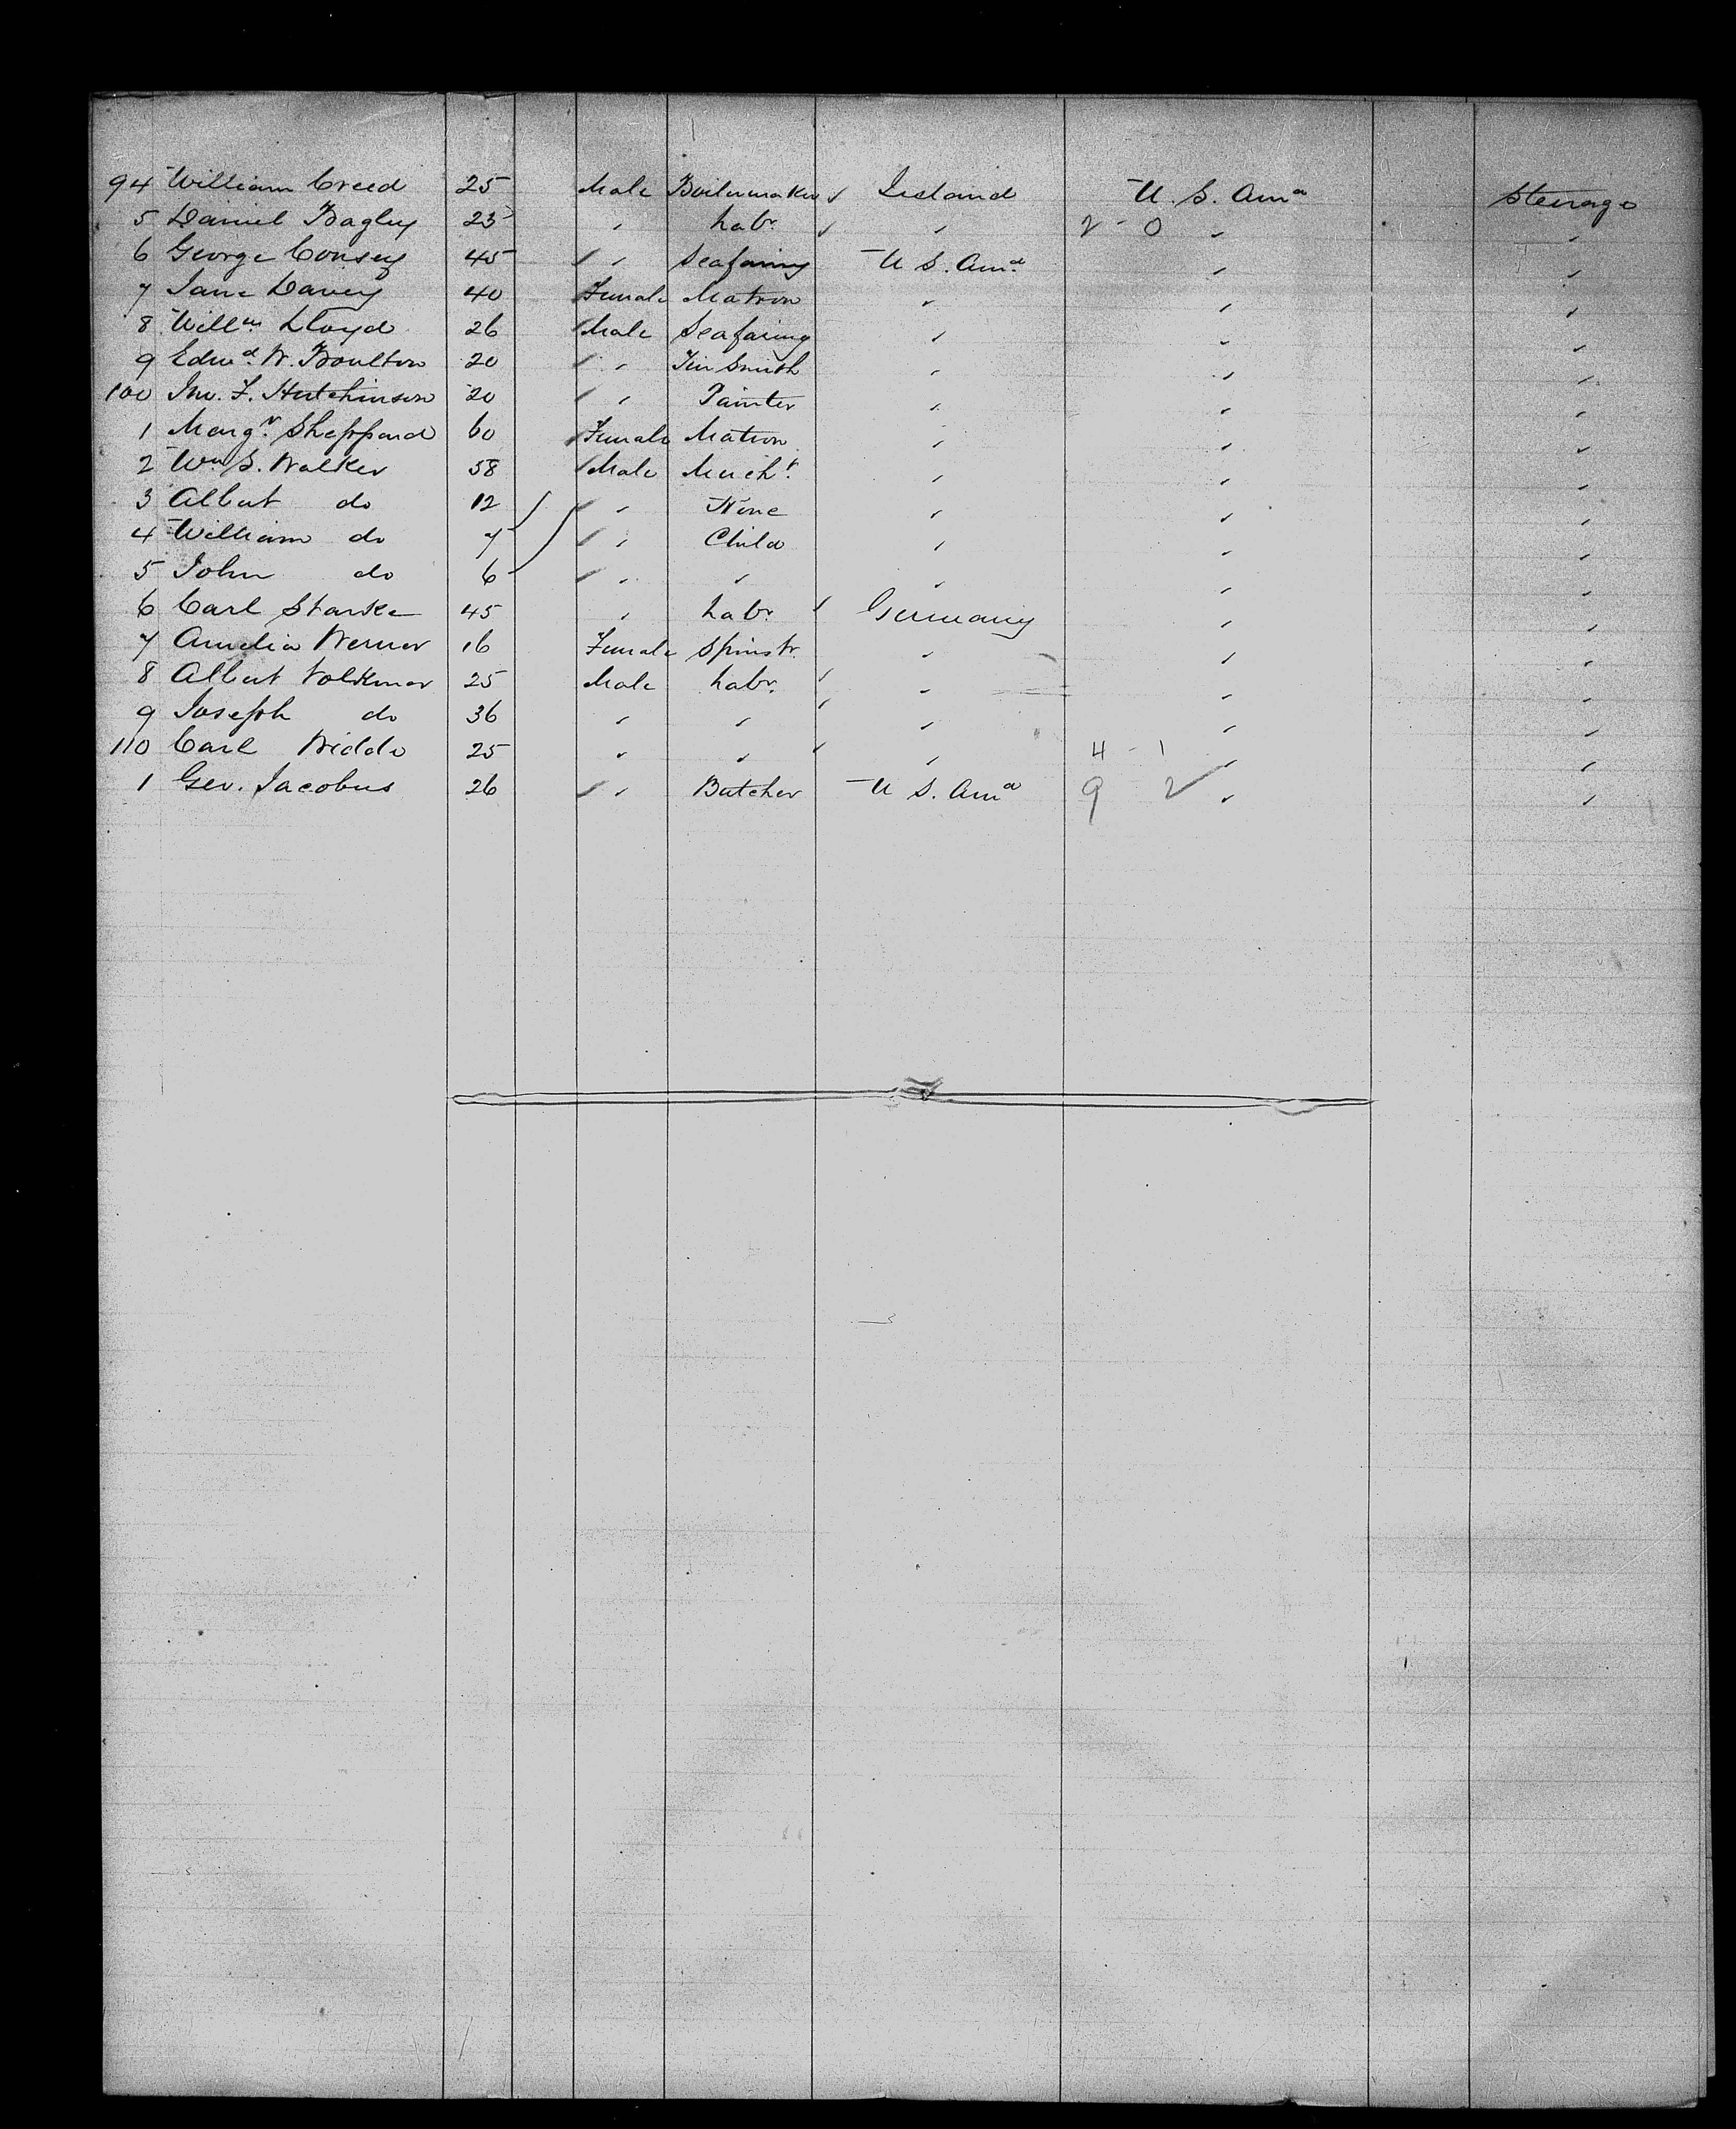 94 William Creed 25 Male Boilermaker ✓ Ireland U. S. Amᵃ Steerage
5 Daniel Bagley 23 " Labr. ✓ " 2 - 0 " "
6 George Consey 45 / " Seafaring U S. Amᵃ " "
7 Jane Davey 40 Female Matron " " "
8 Willᵐ Lloyd 26 / Male Seafaring " " "
9 Edwᵈ W. Boulton 20 / " Tin Smith " " "
100 Jno. F. Hutchinson 20 / " Painter " " "
1 Margᵗ Sheppard 60 / Female Matron " " "
2 Wᵐ S. Walker 38 / Male Mercht. " " "
3 Albert do 12 / " None " " "
4 William do 7 / " Child " " "
5 John do 6 / " " " " "
6 Carl Starke 45 " Labr. ✓ Germany " "
7 Amelia Werner 16 Female Spinstr. " " "
8 Albert Volkmar 25 Male Labr. ✓ " " "
9 Joseph do 36 " " ✓ " " "
110 Carl Widdo 25 " " ✓ " 4 - 1 " "
1 Geo. Jacobus 26 / " Butcher U S. Amᵃ 9 2 " "